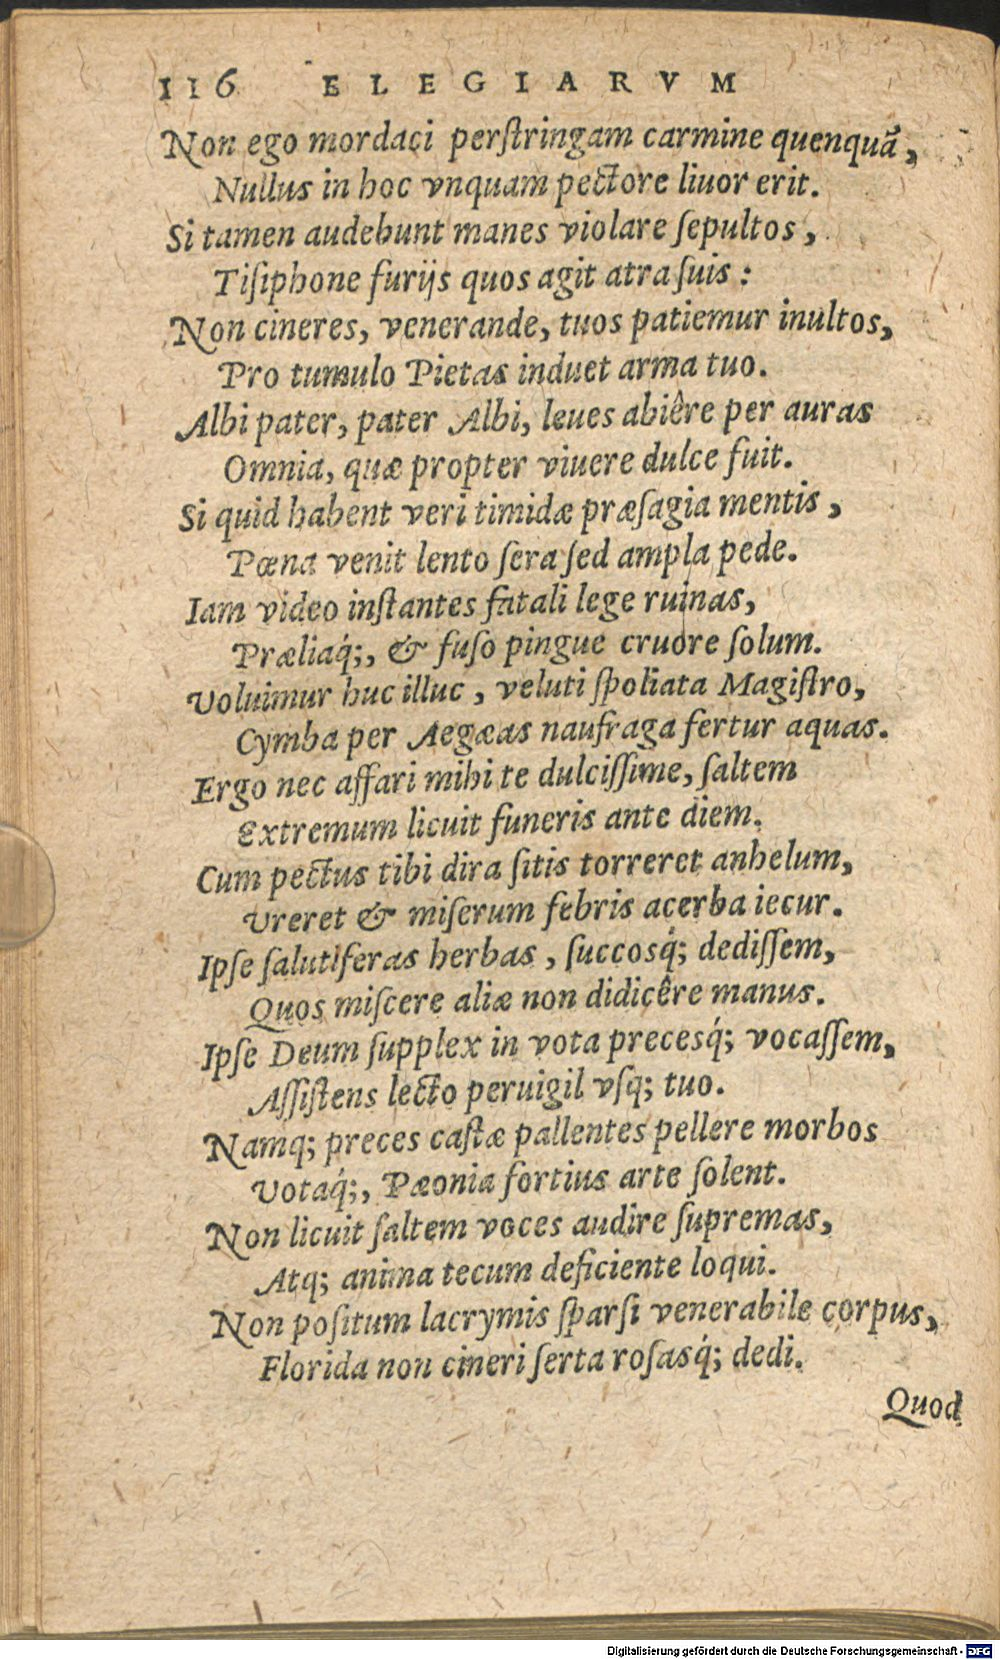 116 ELEGIARVM
Non ego mordaci perſtringam carmine quenquã,
Nullus in hoc vnquam pectore liuor erit.
Si tamen audebunt manes violare ſepultos,
Tiſiphone furijs quos agit atra ſuis:
Non cineres, venerande, tuos patiemur inultos,
Pro tumulo Pietas induet arma tuo.
Albi pater, pater Albi, leues abiêre per auras
Omnia, quæ propter viuere dulce fuit.
Si quid habent veri timidæ præſagia mentis,
Pœna venit lento ſera ſed ampla pede.
Iam video inſtantes fatali lege ruinas,
Præliaq́;, & fuſo pingue cruore ſolum.
Voluimur huc illuc, veluti ſpoliata Magiſtro,
Cymba per Aegæas naufraga fertur aquas.
Ergo nec affari mihi te dulciſſime, ſaltem
Extremum licuit funeris ante diem.
Cum pectus tibi dira ſitis torreret anhelum,
Vreret & miſerum febris acerba iecur.
Ipſe ſalutiferas herbas, ſuccosq́; dediſſem,
Quos miſcere aliæ non didicêre manus.
Ipſe Deum ſupplex in vota precesq́; vocaſſem,
Aſſiſtens lecto peruigil vſq; tuo.
Namq; preces caſtæ pallentes pellere morbos
Votaq́;, Pæonia fortius arte ſolent.
Non licuit ſaltem voces audire ſupremas,
Atq; anima tecum deficiente loqui.
Non poſitum lacrymis ſparſi venerabile corpus,
Florida non cineri ſerta roſasq́; dedi.
Quod
Digitalisierung gefördert durch die Deutsche Forschungsgemeinschaft - DFG